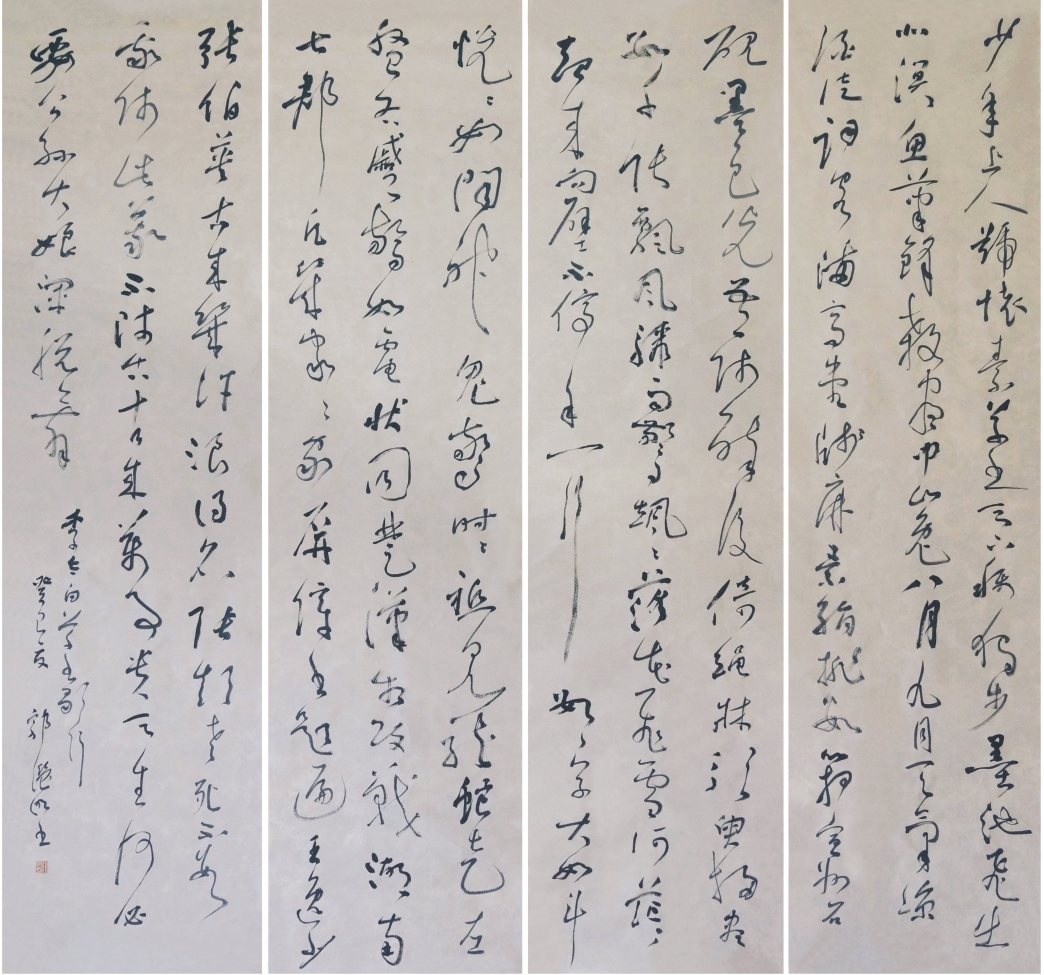 少年上人號懷素草書天下称獨步墨池飛出
北溟魚筆鋒殺盡中山兔八月九月天氣凉
酒徒詞客滿高堂牋麻素絹排數箱宣州石
硯墨色光吾師醉後倚繩牀須臾掃盡
數千張飄風驟雨驚颯颯落花飛雪何茫茫
起來向壁不停手一行數字大如斗
怳怳如聞神鬼驚時時祗見龍蛇走左
盤右蹙驚如電狀同楚漢相攻戰湖南
七郡凡幾家家家屏障書題遍王逸少
張伯英古來幾許浪得名張顛老死不數
我師此義不師古古來萬事貴天生何必
要公孫大娘渾脱舞
李太白草書歌行
癸巳夏 郭書